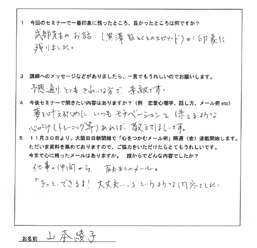 1 今回のセミナーで一番印象に残ったところ、良かったところは何ですか？
武部先生のお話（黒澤監督とのエピソード）が印象に
残りました。
3 講師へのメッセージなどがありましたら、一言でもうれしいのでお願いします。
予想通りとてもきれいな方で、素敵です。
4 今後セミナーで聞きたい内容はありますか？（例 恋愛心理学、話し方、メール術etc）
夢を叶えるために、いつもモチベーションを保てるような
心がけ（トレーニング等）あれば、教えてほしいです。
5 11月30日より、大阪日日新聞様で「心をつかむメール術」隔週（金）連載開始します。
ただいま資料を集めておりますので、ご協力をいただけたらとてもうれしいです。
今まで心に残ったメールはありますか。 誰からでどんな内容でしたか？
仕事の仲間から、励ましのメール。
「きっと、できるよ！大丈夫…」というような内容でした。
お名前 山本綾子